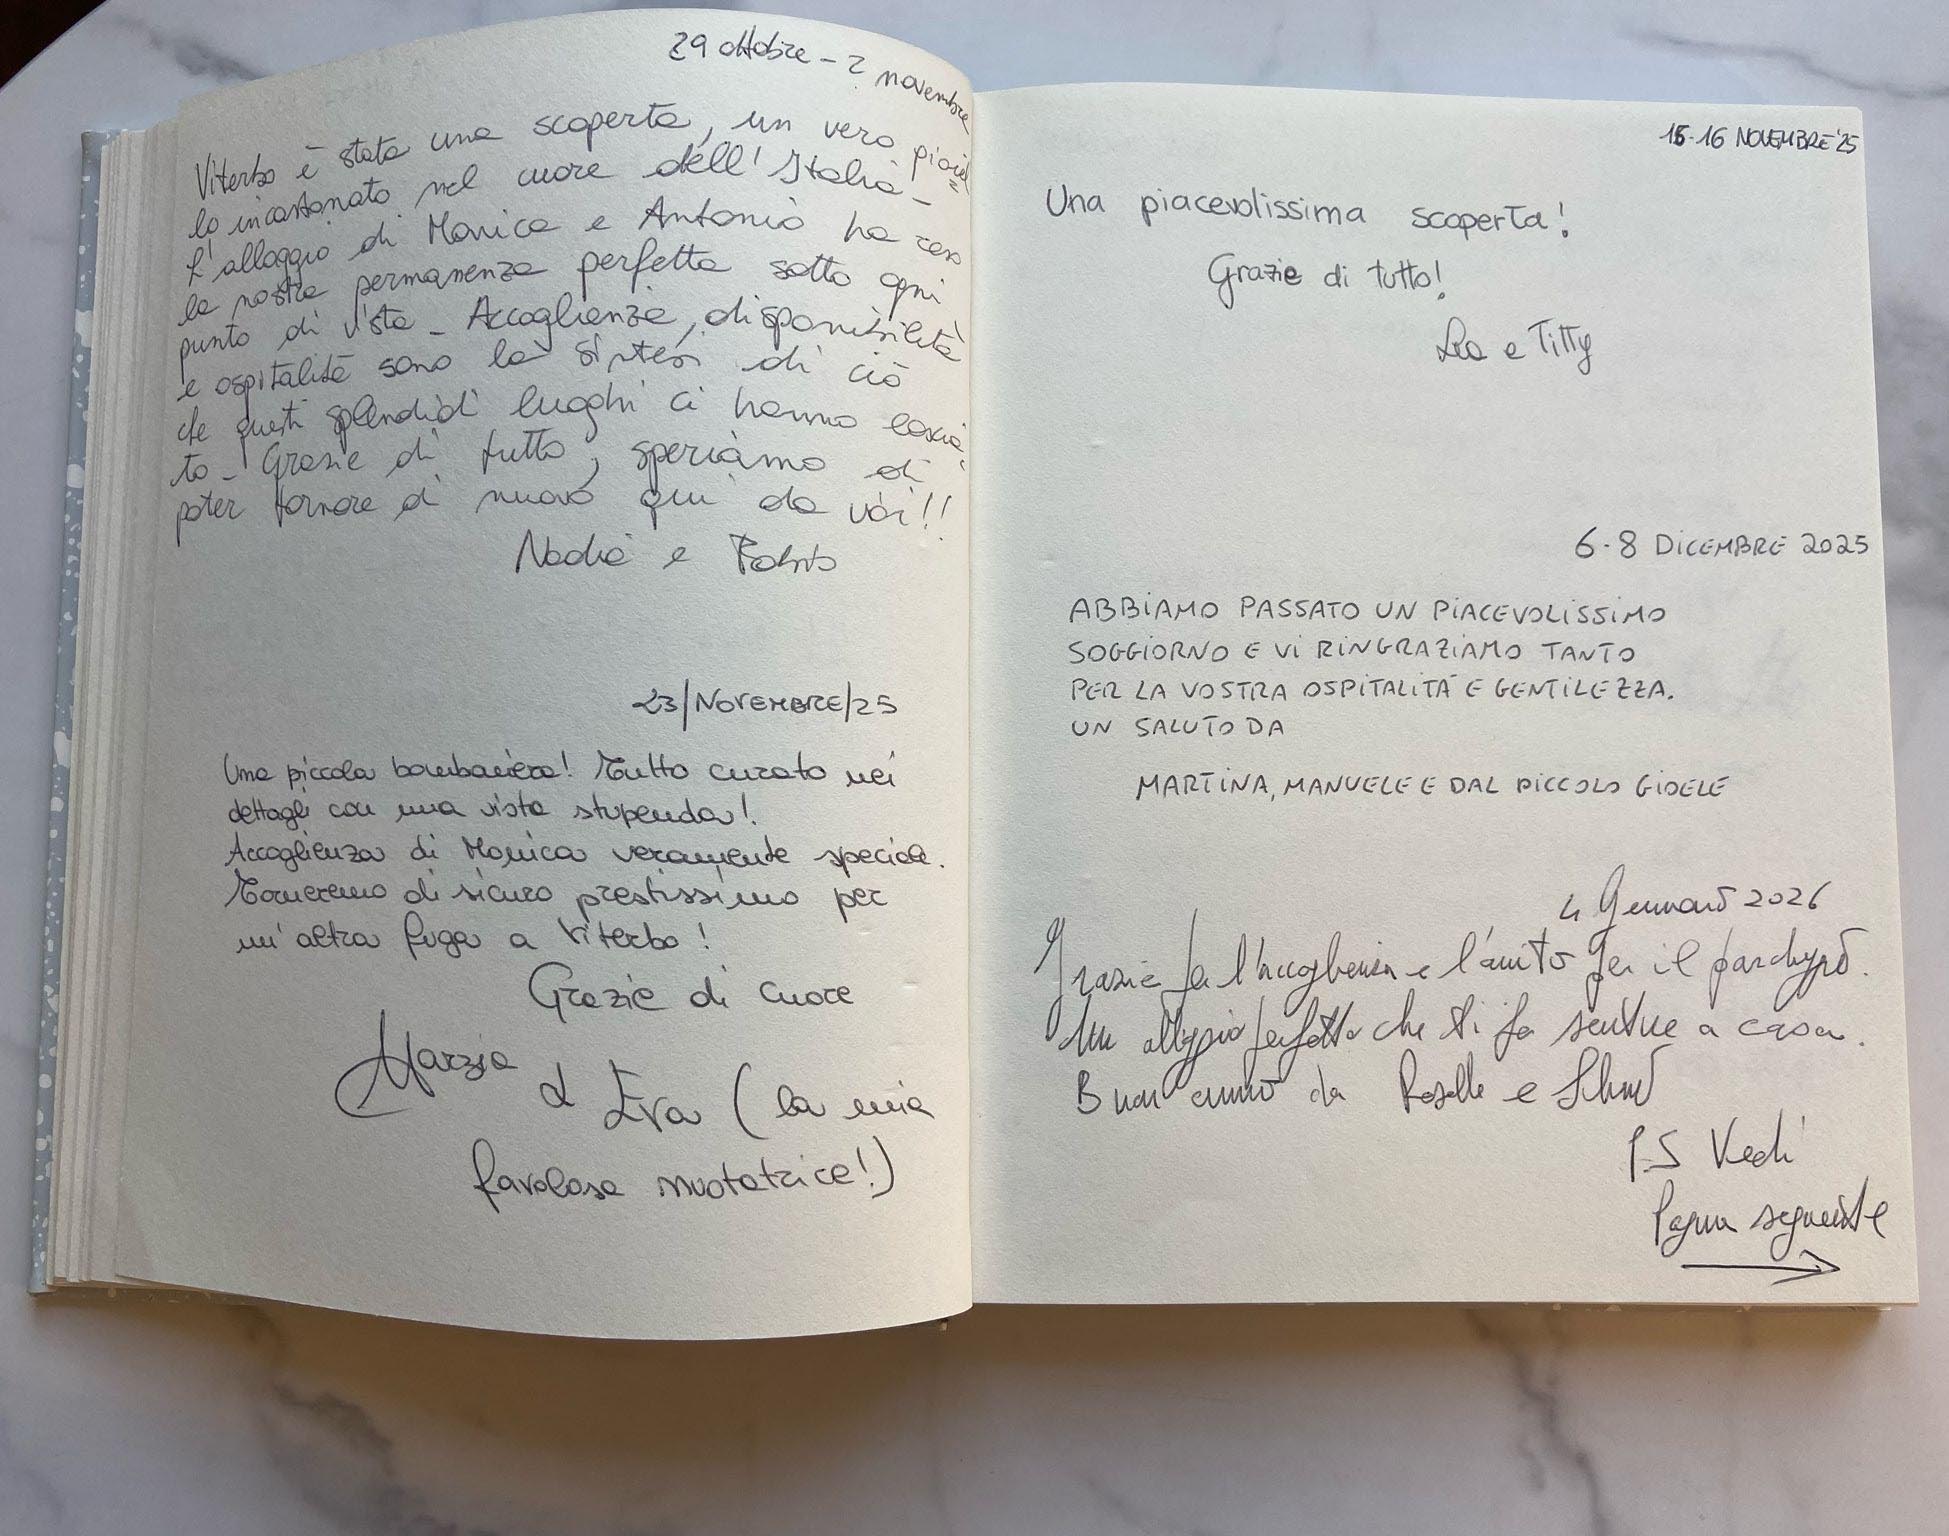 29 ottobre - 2 novembre
Viterbo è stata una scoperta, un vero gioiel
lo incastonato nel cuore dell'Italia -
L'alloggio di Monica e Antonio ha reso
la nostra permanenza perfetta sotto ogni
punto di vista - Accoglienza, disponibilità
e ospitalità sono la sintesi di ciò
che questi splendidi luoghi ci hanno lascia-
to - Grazie di tutto, speriamo di
poter tornare di nuovo qui da voi!!
Nadia e
23/NOVEMBRE/25
Una piccola bomboniera! Tutto curato nei
dettagli con una vista stupenda!
Accoglienza di Monica veramente speciale.
Torneremo di sicuro prestissimo per
un'altra fuga a Viterbo!
Grazie di cuore
Marzia
& Eva (la mia
favolosa nuotatrice!)
15-16 NOVEMBRE '25
Una piacevolissima scoperta!
Grazie di tutto!
e Titty
6-8 DICEMBRE 2025
ABBIAMO PASSATO UN PIACEVOLISSIMO
SOGGIORNO E VI RINGRAZIAMO TANTO
PER LA VOSTRA OSPITALITÀ E GENTILEZZA.
UN SALUTO DA
MARTINA, MANUELE E DAL PICCOLO GIOELE
4 Gennaio 2026
Grazie per l'accoglienza e l'aiuto per il parcheggio.
Un alloggio perfetto che ti fa sentire a casa.
Buon anno da e
P.S Vedi
Pagina seguente